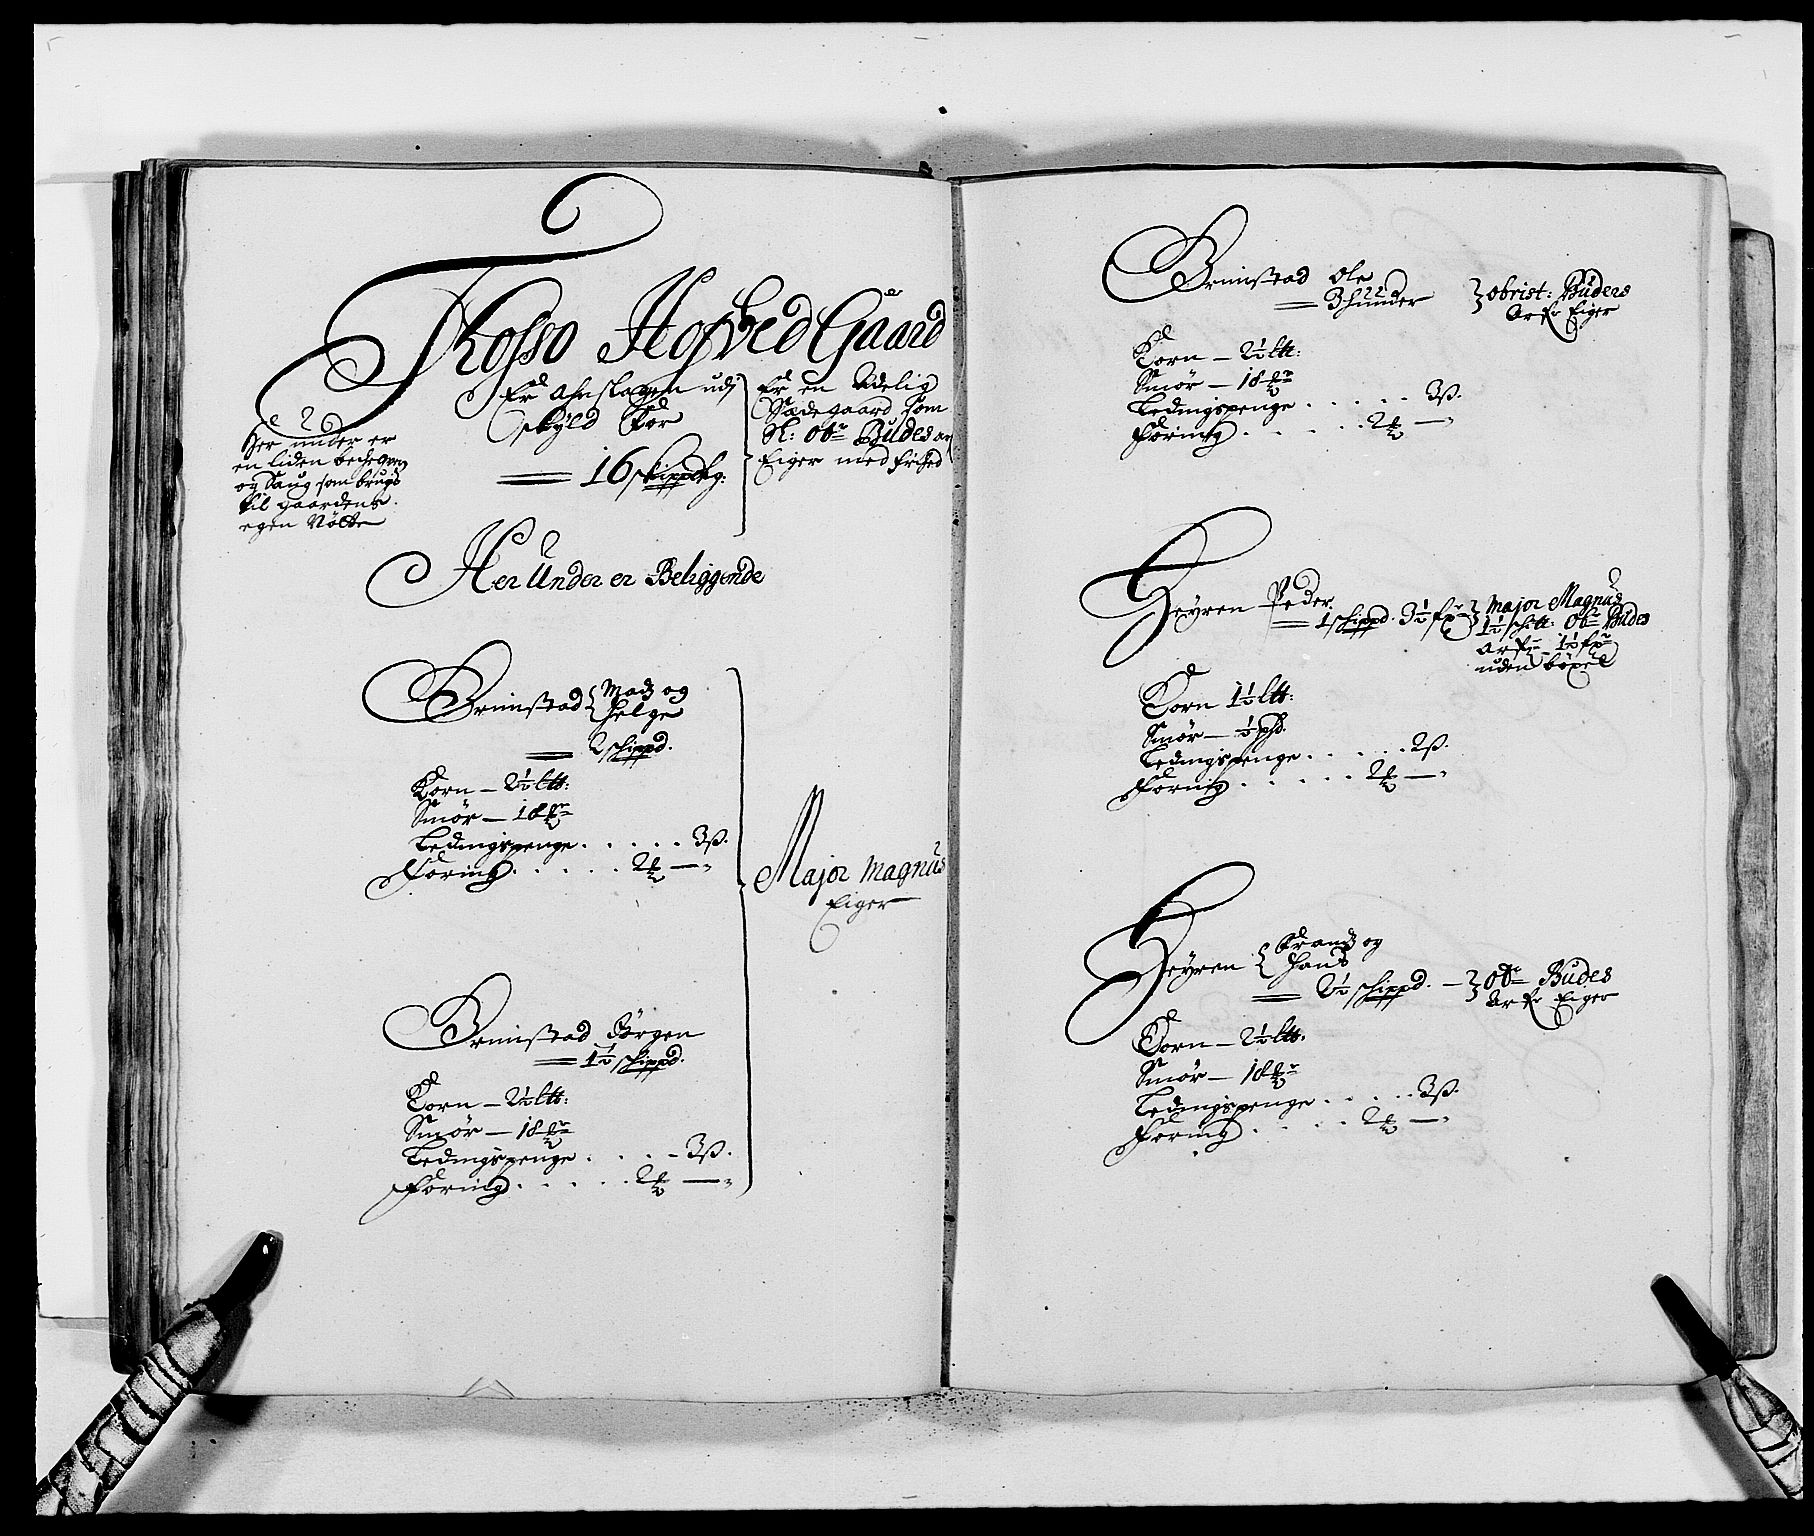 Thosso Hofved Gaard
Er Ahnslagen udj
Skyld For
16 skippdg:
Er en Adelig
Sædegaard som
Sl: Obr Budes ar
Eiger med frihed
Her under er
en liden bechequern
og Saug som brugs
til gaardens
egen Nötte
Her Under er Beliggende
Grimstad Madz og
Helge
2 schippd.
Korn – 2½ ltt:
Smör – 18
Ledingspenge . . . . . 3ß.
Foring . . . . . 2 —
Major Magnus
Eiger
Grimstad Jörgen
1½ schippd.
Korn – 2½ ltt:
Smör – 18
Ledingspenge . . . . 3ß.
Foring . . . . . 2 —
Grimstad Ole
3 hunder
obrist: Budes
Arfr Eiger
Korn – 2½ ltt:
Smör – 18
Ledingspenge . . . . . 3ß.
Foring . . . . . 2 —
Heyren Peder
1 schippd. 3½ fxr
Major Magnus
1½ schtt: Obr Budes
arfr 1½ fxr
uden böxel
Korn 1½ ltt:
Smör – ½ phd.
Ledingspenge . . . . . 2ß.
Foring . . . . . 2 —
Heyren Frandz og
Hans
2½ schippd. – Obr Budes
Arfr Eiger
Korn – 2½ ltt.
Smör – 18
Ledingspenge . . . . . 3ß.
Foring . . . . . 2 —